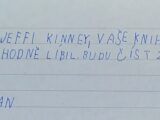 JEFFI KINNEY, VAŠE KNIH
HODNĚ LÍBIL. BUDU ČÍST
AN